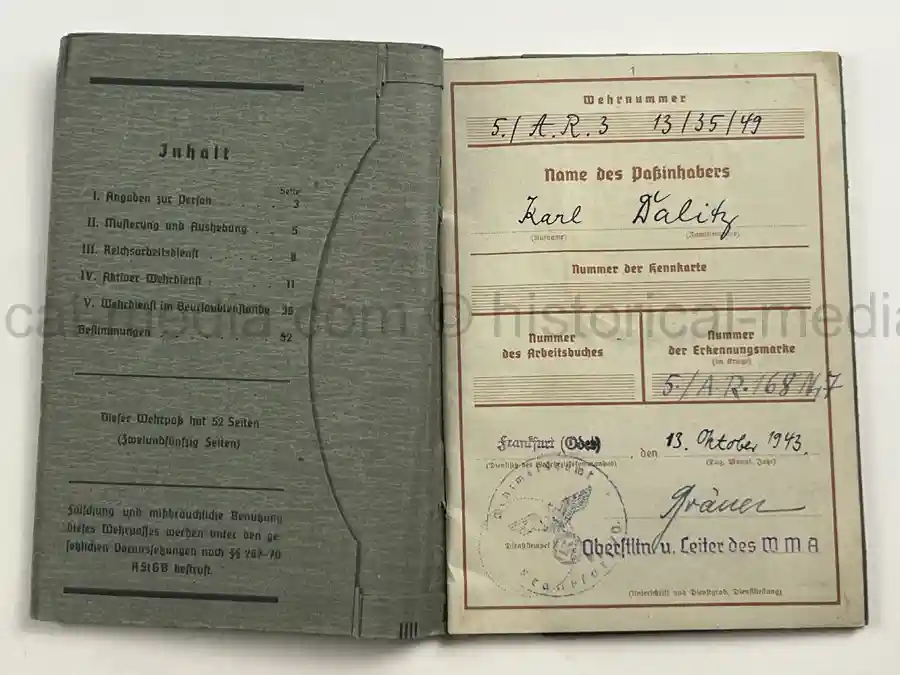 Inhalt
Seite
I. Angaben zur Person . . . . . 3
II. Musterung und Aushebung . . . 5
III. Reichsarbeitsdienst . . . . .
IV. Aktiver Wehrdienst . . . . . 11
V. Wehrdienst im Beurlaubtenstande
Bestimmungen . . . . . 52
Dieser Wehrpaß hat 52 Seiten
(Zweiundfünfzig Seiten)
Fälschung und mißbräuchliche Benutzung
dieses Wehrpasses werden unter den ge-
setzlichen Voraussetzungen nach §§
RStGB bestraft.
1
Wehrnummer
5./A.R.3 13/35/49
Name des Paßinhabers
Karl Dalitz
(Vorname) (Familienname)
Nummer der Kennkarte
Nummer
des Arbeitsbuches
Nummer
der Erkennungsmarke
(im Kriege)
5./A.R./168 Nr. 7
Frankfurt (Oder), den 13. Oktober 1943.
(Tag, Monat, Jahr)
Wehrmeldeamt
Frankfurt/O
Dienststempel
Oberstltn. u. Leiter des W M A
(Unterschrift und Dienstgrad, Dienststellung)
cal-media.com © historical-media